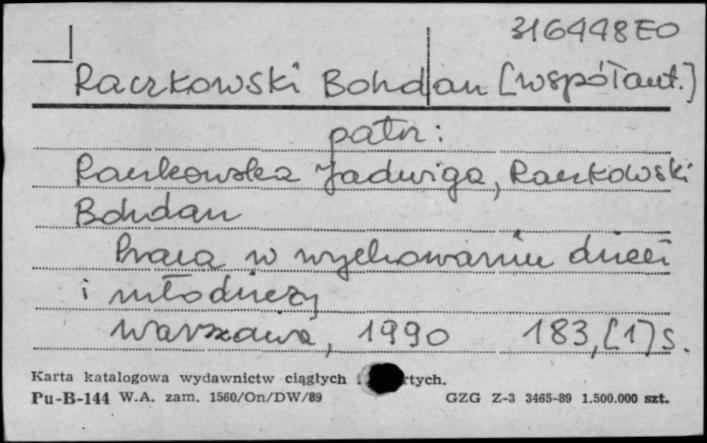 316448EO
Raczkowski Bohdan [współaut.]
patrz:
Raczkowska Jadwiga, Raczkowski
Bohdan
Praca w wychowaniu dzieci
i młodzieży
Warszawa, 1990 183,[1]s.
Karta katalogowa wydawnictw ciągłych rtych.
Pu-B-144 W.A. zam. 1560/On/DW/89 GZG Z-3 3465-89 1.500.000 szt.